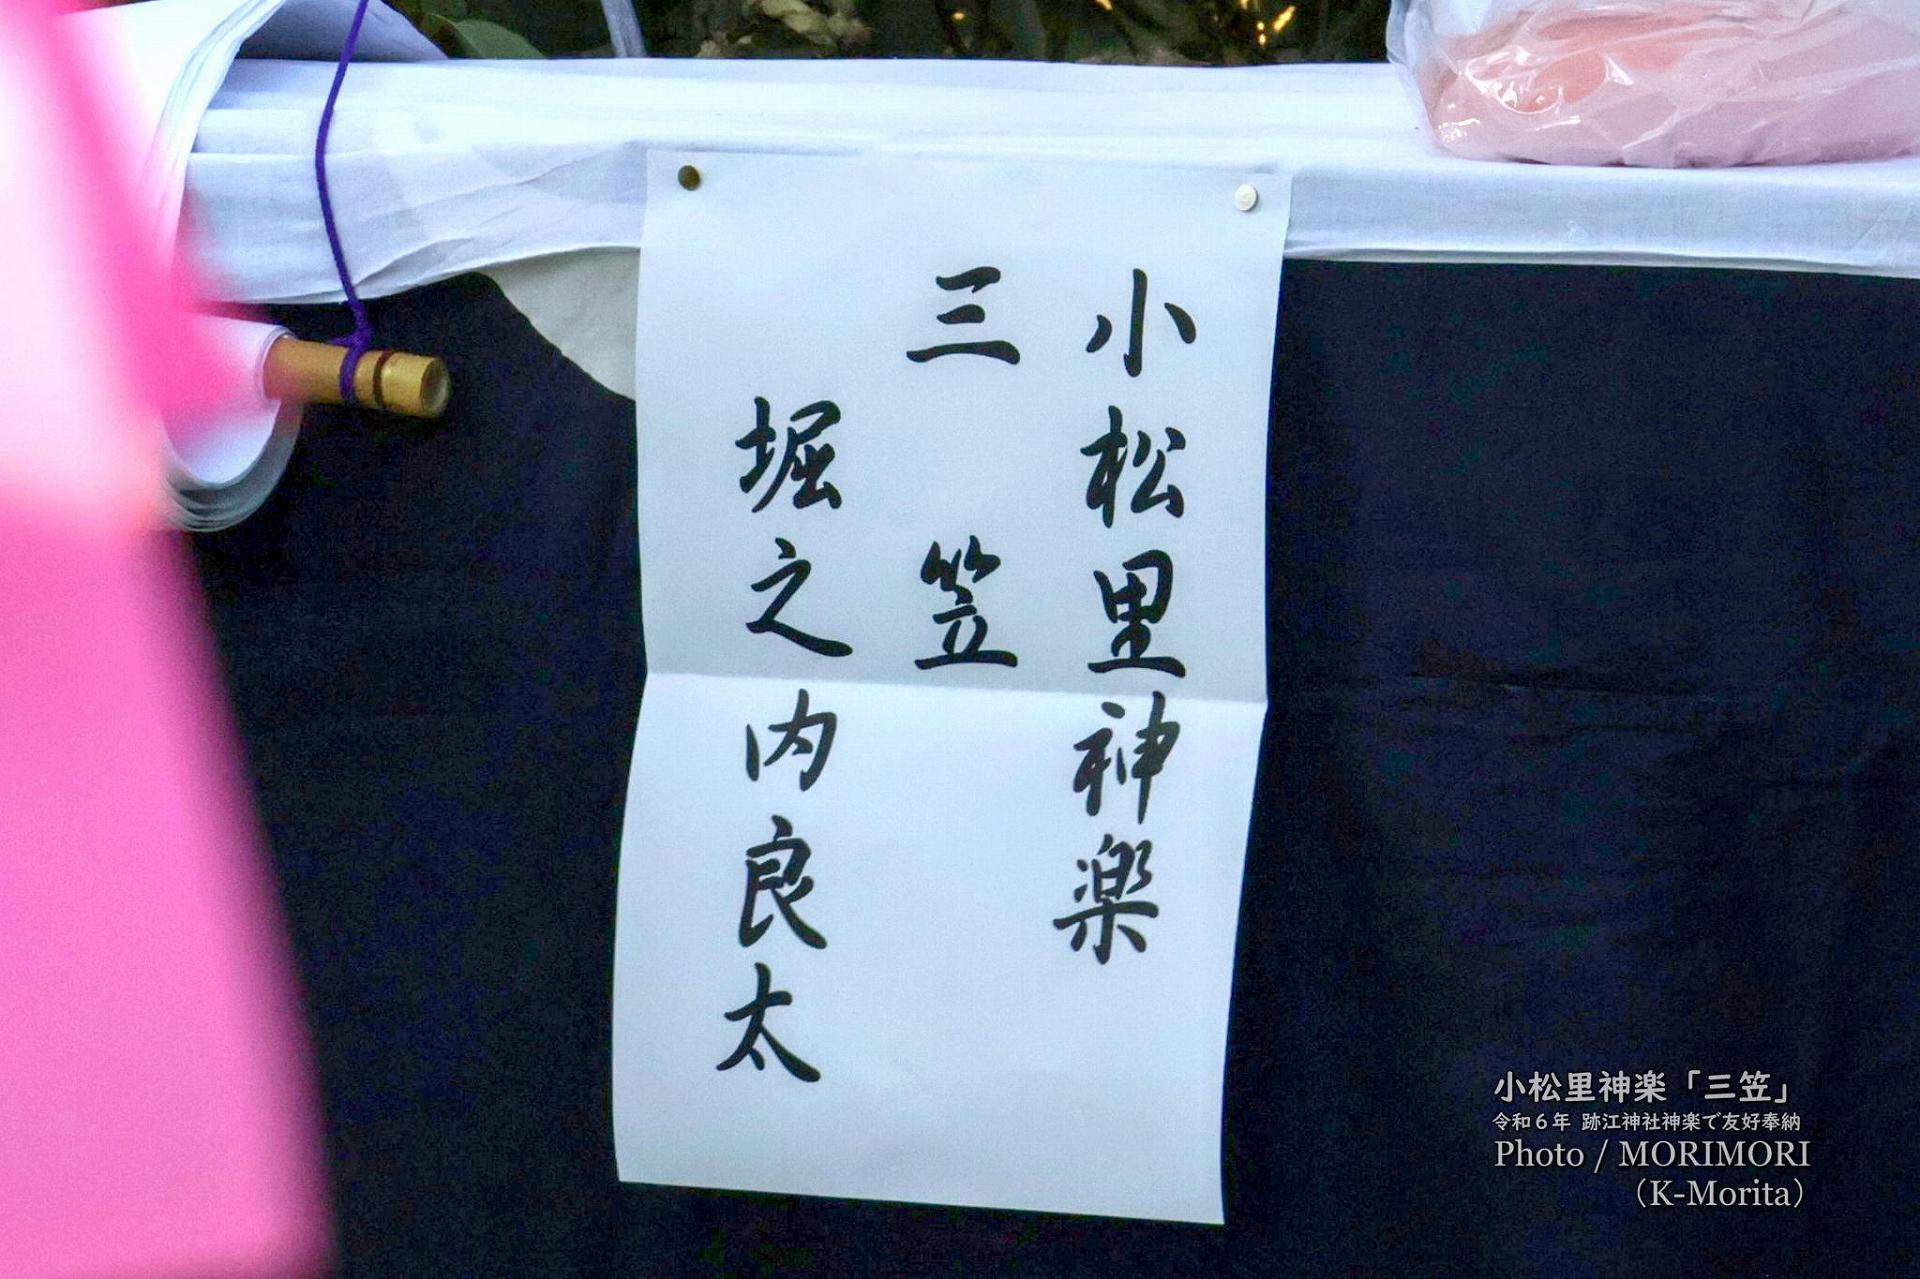 小松里神楽
三笠
堀之内良太
小松里神楽「三笠」
令和6年 跡江神社神楽で友好奉納
Photo / MORIMORI
（K-Morita）